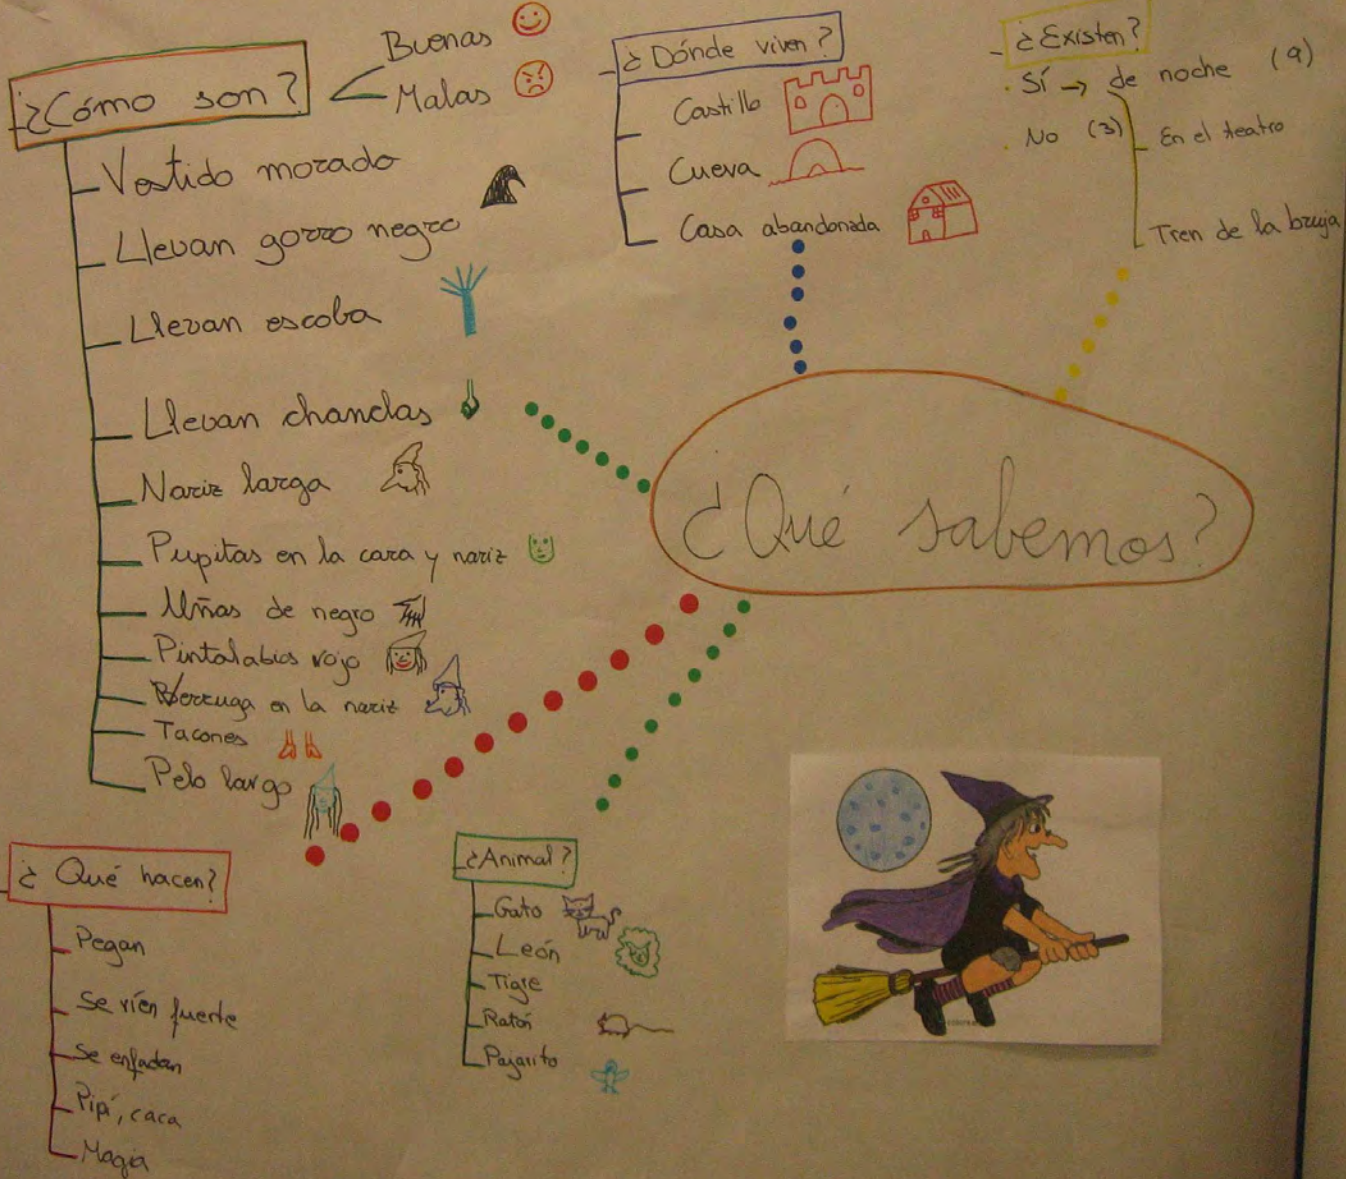 ¿Cómo son?
Buenas
Malas
Vestido morado
Llevan gorro negro
Llevan escoba
Llevan chanclas
Nariz larga
Pupitas en la cara y nariz
Uñas de negro
Pintalabios rojo
Verruga en la nariz
Tacones
Pelo largo
¿Dónde viven?
Castillo
Cueva
Casa abandonada
¿Existen?
Sí → de noche (9)
No (3)
En el teatro
Tren de la bruja
¿Qué sabemos?
¿Qué hacen?
Pegan
Se ríen fuerte
Se enfadan
Pipí, caca
Magia
¿Animal?
Gato
León
Tigre
Ratón
Pajarito